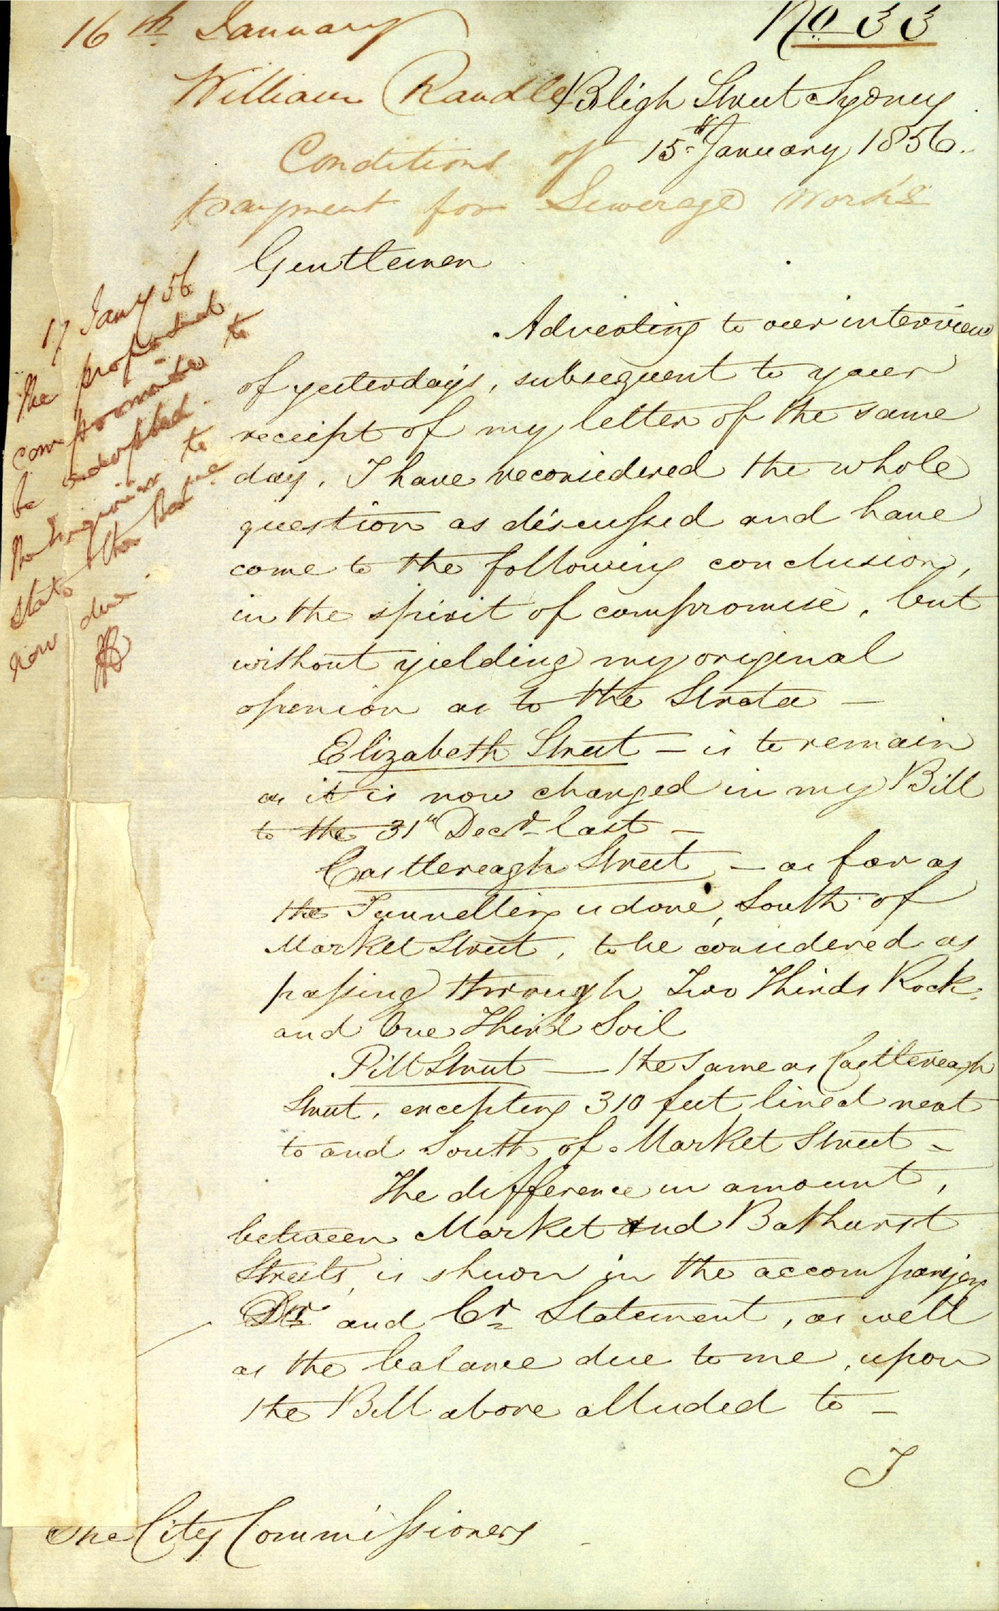 16th January
No 33
William Randle
Bligh Street Sydney
15th January 1856.
Conditions of
payment for Sewerage Works
Gentlemen
Adverting to our interview
of yesterdays, subsequent to your
receipt of my letter of the same
day, I have reconsidered the whole
question as discussed and have
come to the following conclusion,
in the spirit of compromise, but
without yielding my original
openion as to the Strata —
Elizabeth Street — is to remain
as it is now charged in my Bill
to the 31st Decr last —
Castlereagh Street — as far as
the Tunnelling is done, South of
Market Street, to be considered as
passing through Two Thirds Rock
and One Third Soil
Pitt Street — the same as Castlereagh
Street, excepting 310 feet lined next
to and South of Market Street —
The difference in amount,
between Market and Bathurst
Streets, is shewn in the accompanying
Dr and Cr Statement, as well
as the balance due to me, upon
the Bill above alluded to —
I
The City Commissioners
17 Jany 56
The proposed
compromise to
be adopted.
The Engineer to
state the
now due